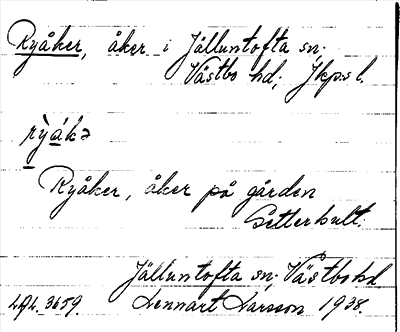 Ryåker, åker i Jälluntofta sn.
Västbo hd; Jkps l.
rỳåkə
Ryåker, åker på gården
Setterhult.
Jälluntofta sn. Västbo hd
LAL. 3659. Lennart Larsson 1938.